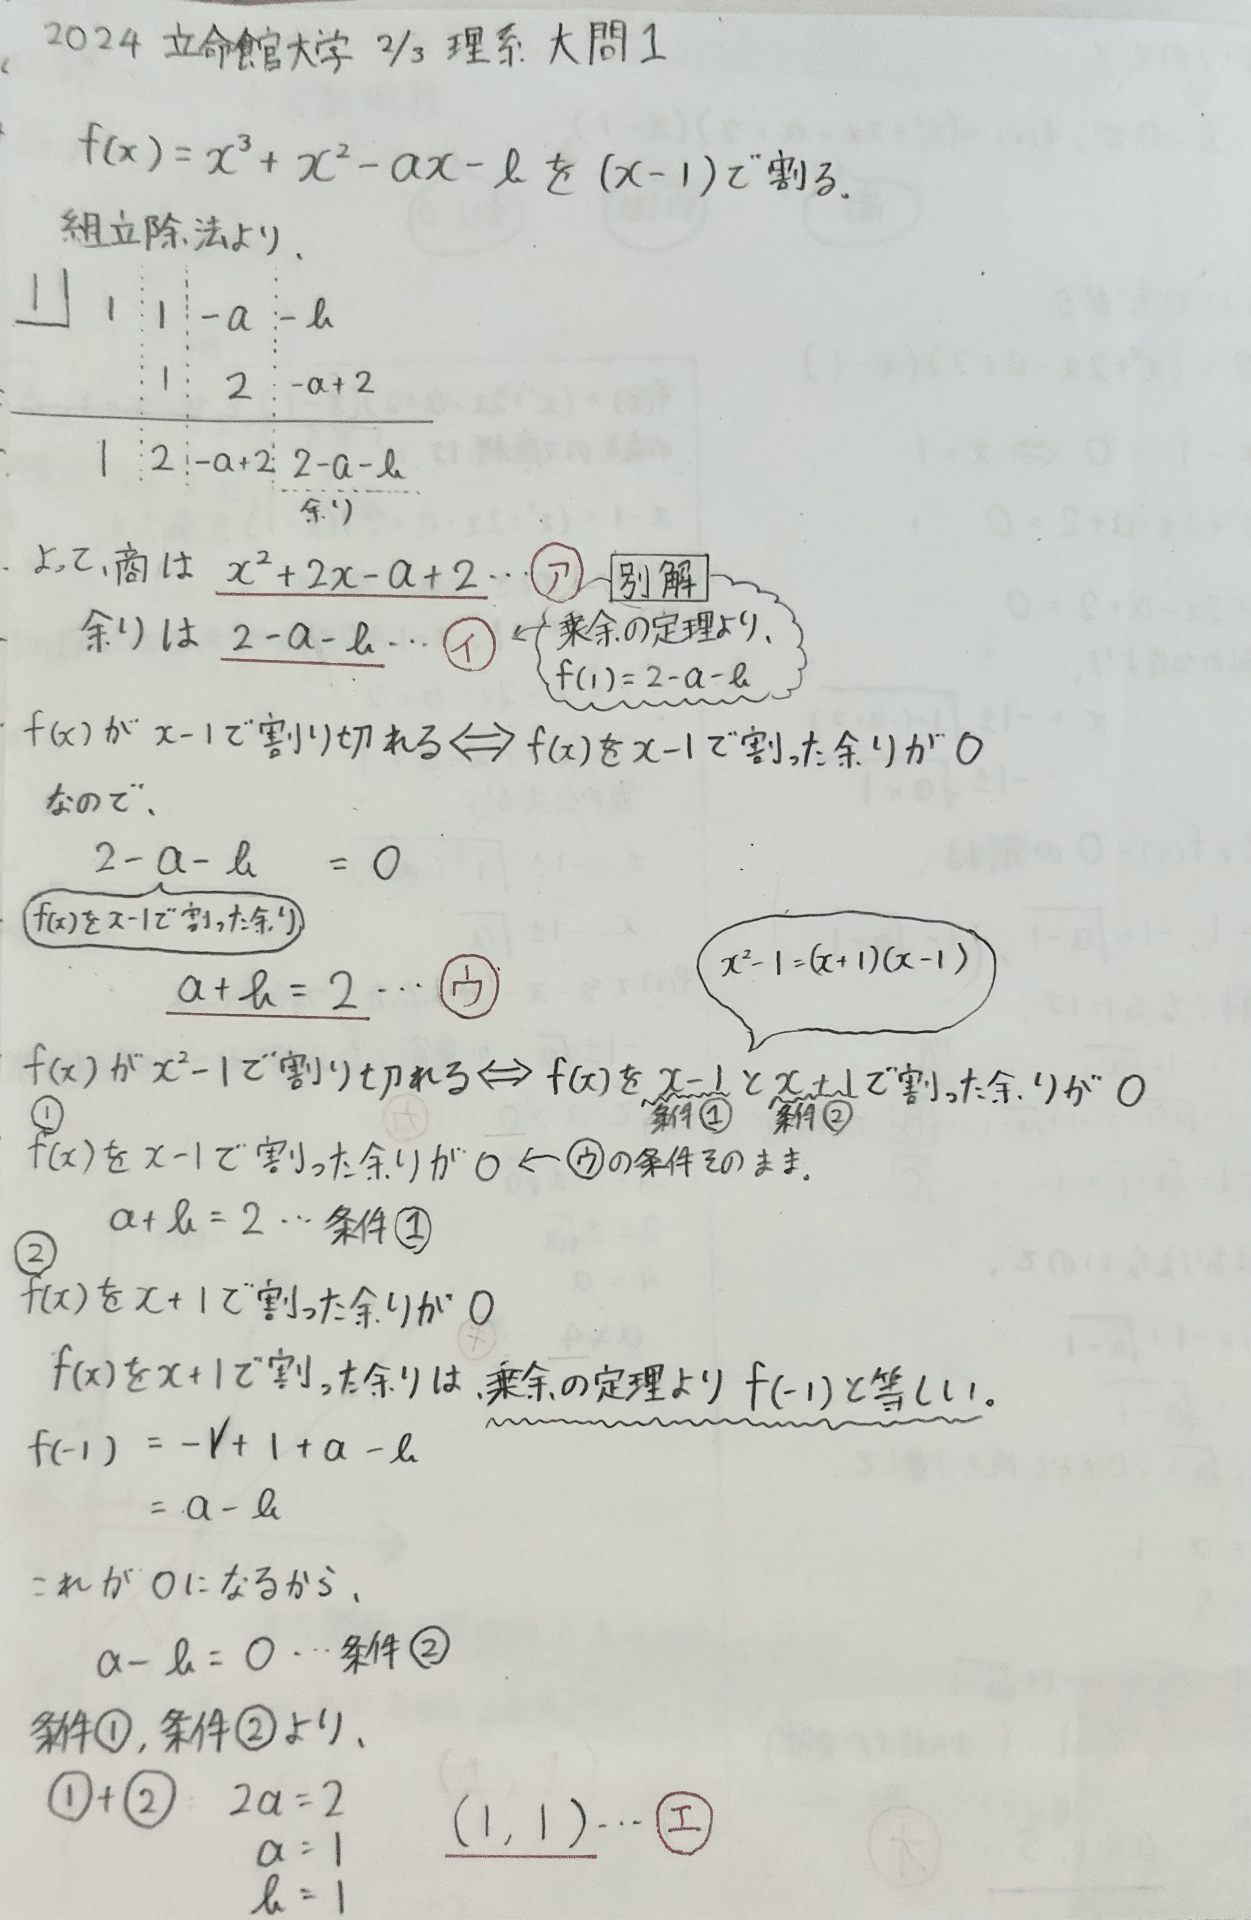 2024 立命館大学 2/3 理系 大問1
f(x)=x³+x²-ax-bを(x-1)で割る.
組立除法より、
1 1 1 -a -b
1 2 -a+2
1 2 -a+2 2-a-b
余り
よって、商は x²+2x-a+2…㋐
別解
余りは 2-a-b…㋑
←乗余の定理より、
f(1)=2-a-b
f(x)がx-1で割り切れる⇔f(x)をx-1で割った余りが0
なので、
2-a-b =0
f(x)をx-1で割った余り
a+b=2…㋒
x²-1=(x+1)(x-1)
f(x)がx²-1で割り切れる⇔f(x)をx-1とx+1で割った余りが0
条件① 条件②
①
f(x)をx-1で割った余りが0←㋒の条件そのまま.
a+b=2…条件①
②
f(x)をx+1で割った余りが0
f(x)をx+1で割った余りは、乗余の定理よりf(-1)と等しい。
f(-1) =-1+1+a-b
=a-b
これが0になるから、
a-b=0…条件②
条件①,条件②より、
①+② 2a=2
a=1
b=1
(1,1)…㋓